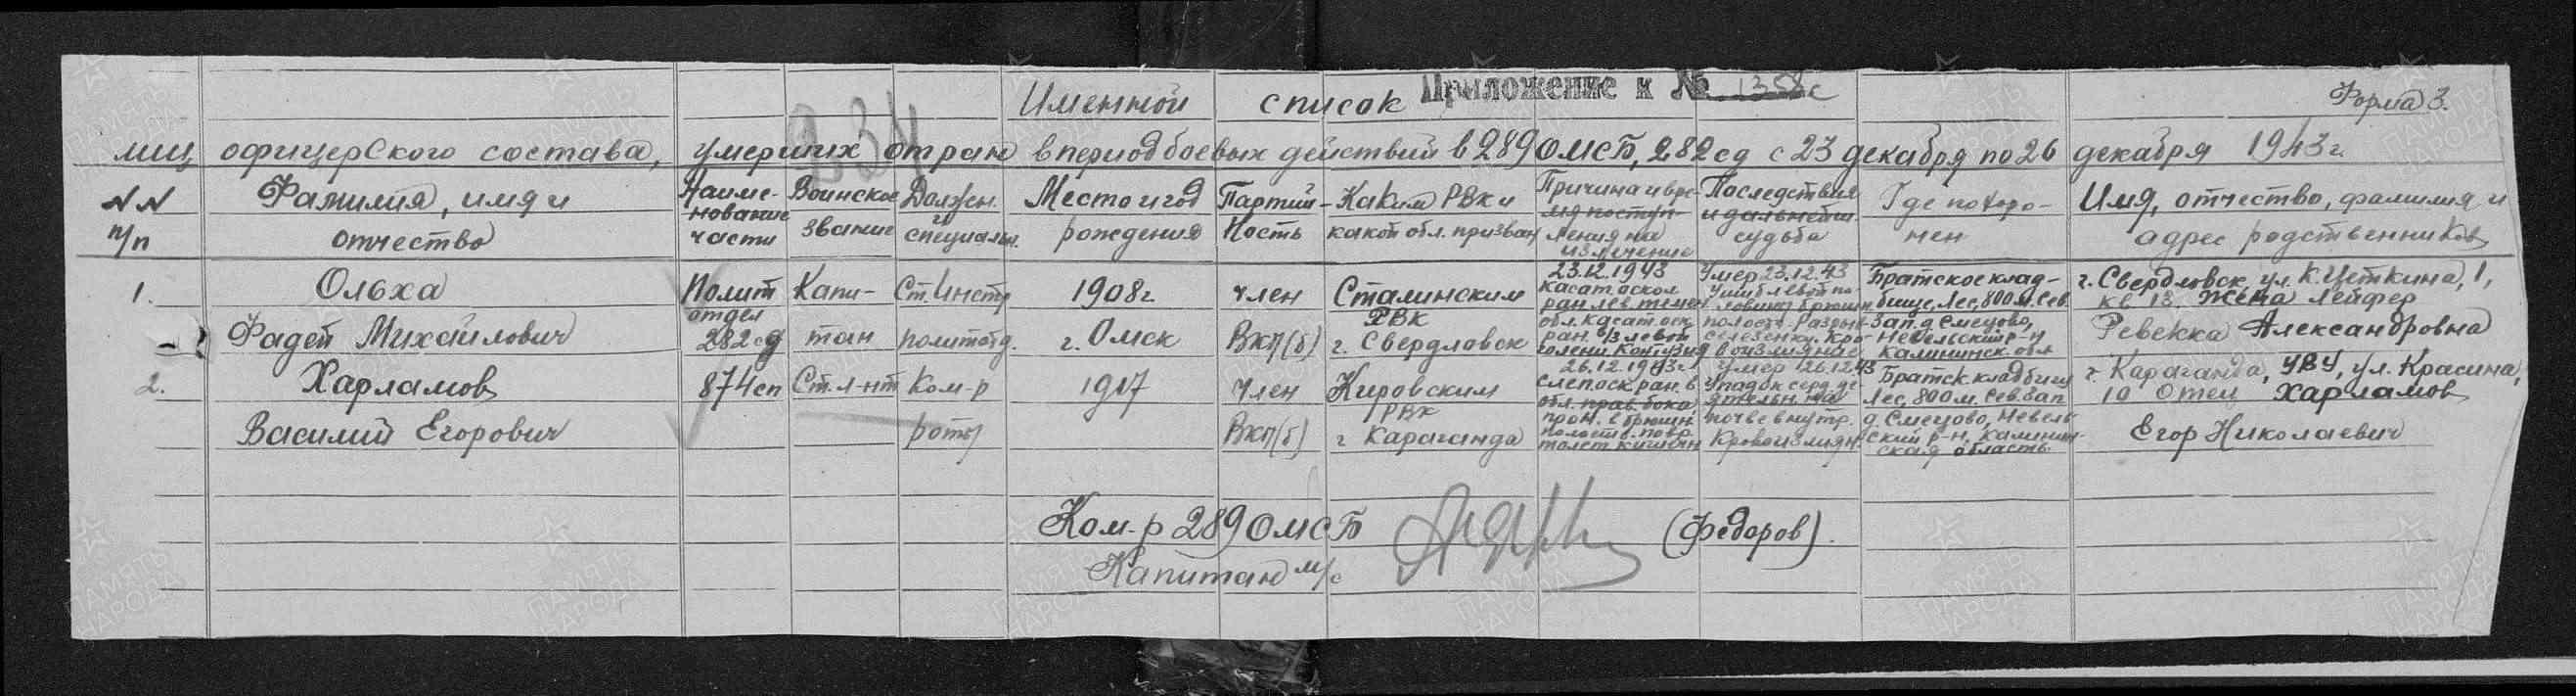 Приложение к № 1358с
Именной список
Форма 3.
234
лиц офицерского состава, умерших от ран в период боевых действий в 289 ОМСБ, 282 сд с 23 декабря по 26 декабря 1943 г.
NN п/п
Фамилия, имя и отчество
Наименование части
Воинское звание
Должен. специальн.
Место и год рождения
Партийность
Каким РВК и какой обл. призван
Причина и время поступления на излечение
Последствия и дальнейш. судьба
Где похоронен
Имя, отчество, фамилия и адрес родственников
1.
Ольха
Фадей Михайлович
Полит
отдел
282 сд
Капи-
тан
Ст. Инстр
политотд.
1908 г
г. Омск
член
ВКП(б)
Сталинским
РВК
г. Свердловск
23.12.1943
касат. оскол
ран. лев. темен
обл. касат. оск.
ран. в/з левой
голени. Контузия
Умер 23.12.43
Ушиб левой по-
ловины брюшн.
полост. Разрыв
селезенки. Кро-
воизлияние
Братское клад-
бище, Лес, 800 м. Сев.
Зап. д Смецово,
Невельский р-н
Калининск. обл
г. Свердловск, ул. К. Цеткина, 1,
кв 13 Жена Лейфер
Ревекка Александровна
2.
Харламов
Василий Егорович
874 сп
Ст. л-нт
Ком-р
роты
1917
Член
ВКП(б)
Кировским
РВК
г Караганда
26.12.1943 г
Слеп. оск. ран. в
обл. прав. бока,
прон. в брюшн.
полость. повр.
толст. кишечн
Умер 26.12.43
Упадок серд. де-
ятельн. на
почве внутр.
Кровоизлиян.
Братск кладбищ
Лес, 800 м. Сев. Зап
д. Смецово, Невель-
ский р-н. Калинин-
ская область.
г. Караганда, УВУ, ул. Красина,
10 Отец Харламов
Егор Николаевич
Ком-р 289 ОМСБ
(Федоров).
Капитан м/с
ПАМЯТЬ
НАРОДА